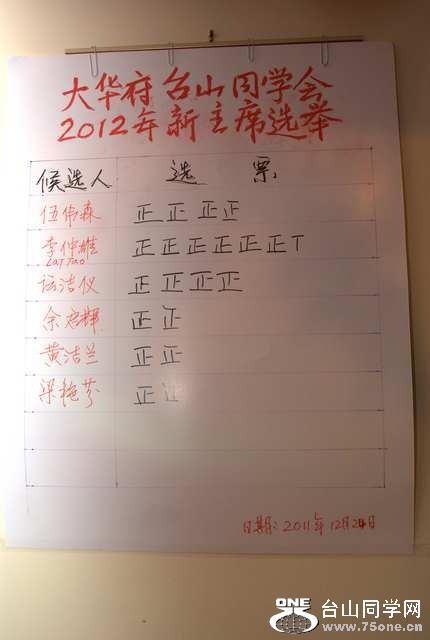 大华府台山同学会
2012年新主席选举
候选人 选 票
伍伟森 正 正 正 正
李仲维 正 正 正 正 正 正 T
洁仪 正 正 正 正
余启辉 正 正
黄洁兰 正 正
梁艳芬 正
日期: 2011年12月24日
ONE
台山同学网
www.75one.cn